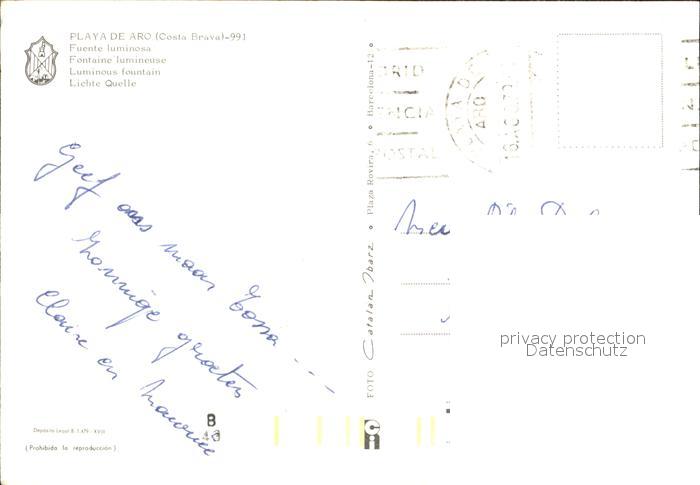 PLAYA DE ARO (Costa Brava)-991
Fuente luminosa
Fontaine lumineuse
Luminous fountain
Lichte Quelle
Geef ons maar Tossa ...
Zonnige groeten
Claire en Maurice
Depósito Legal B. 1.479 - XVIII
(Prohibida la reproducción)
B
43
FOTO Catalan Ibarz Plaza Rovira, 6 Barcelona-12
ARO
POSTAL
privacy protection
Datenschutz